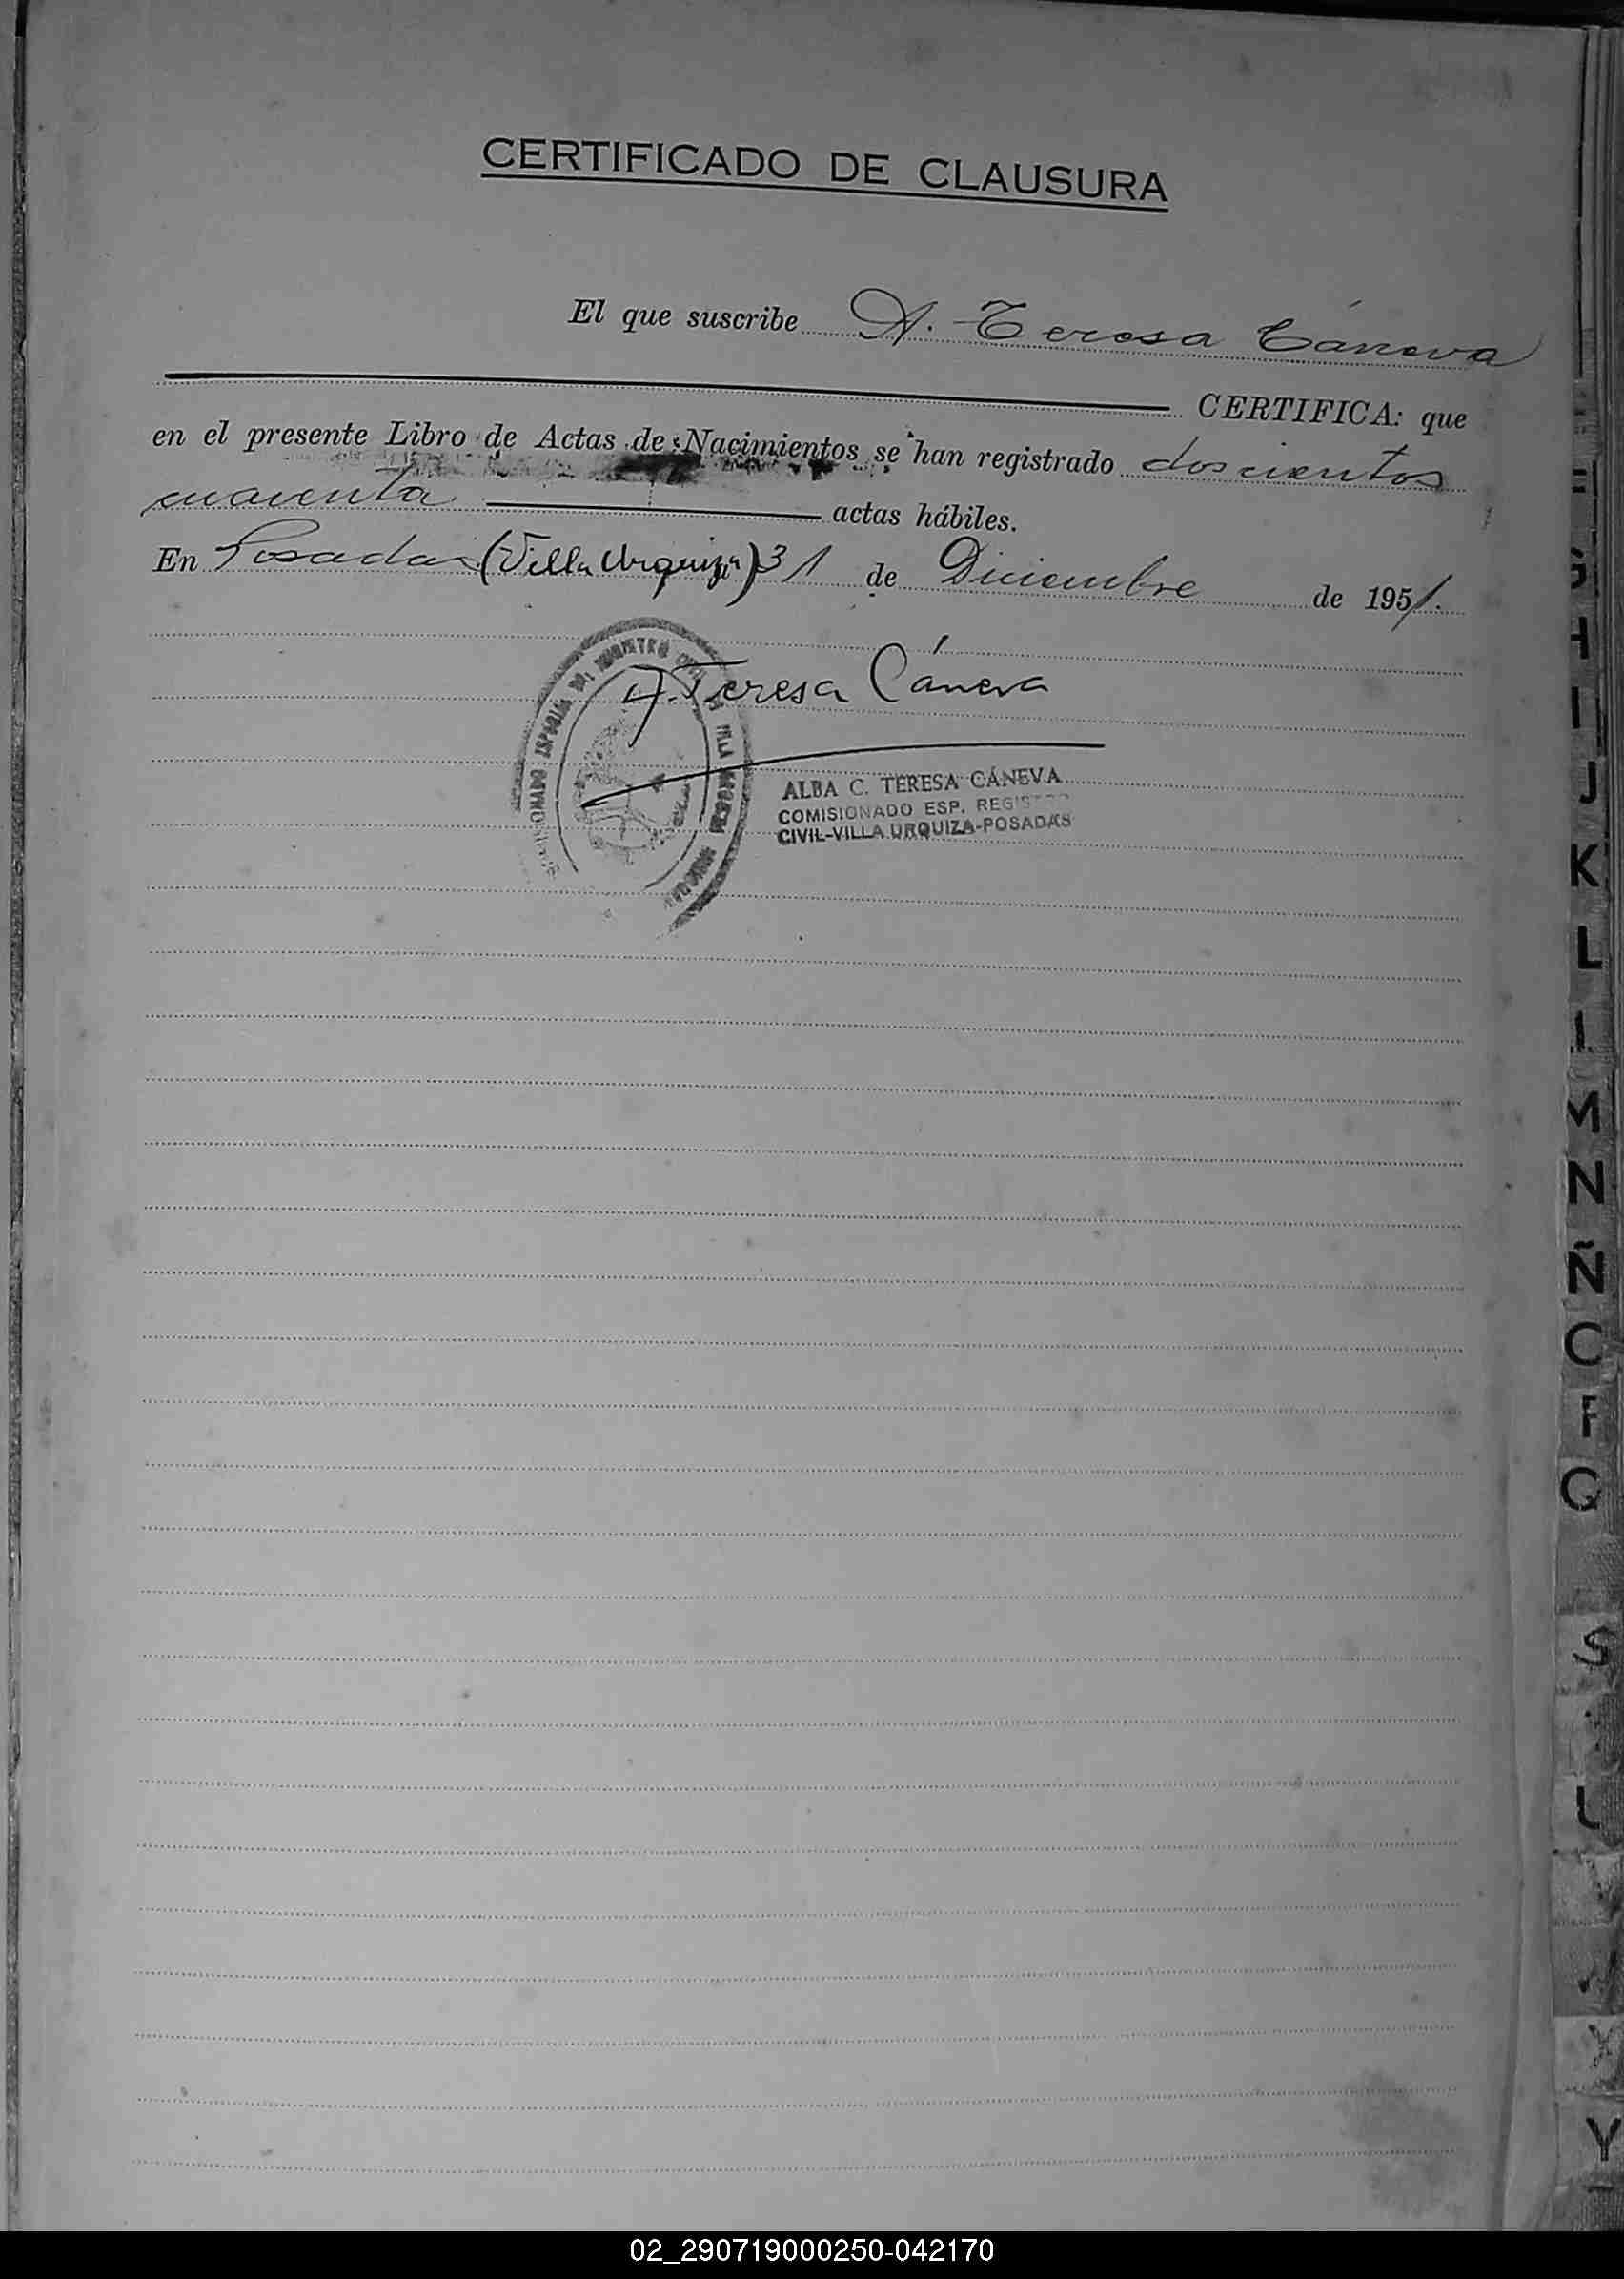 CERTIFICADO DE CLAUSURA
El que suscribe A. Teresa Cáneva
CERTIFICA: que
en el presente Libro de Actas de Nacimientos se han registrado doscientos
cuarenta actas hábiles.
En Posadas (Villa Urquiza) 31 de Diciembre de 1951.
A. Teresa Cáneva
ALBA C. TERESA CÁNEVA
COMISIONADO ESP. REGISTRO
CIVIL-VILLA URQUIZA-POSADAS
J
K
L
M
N
Ñ
Q
S
X
Y
02_290719000250-042170